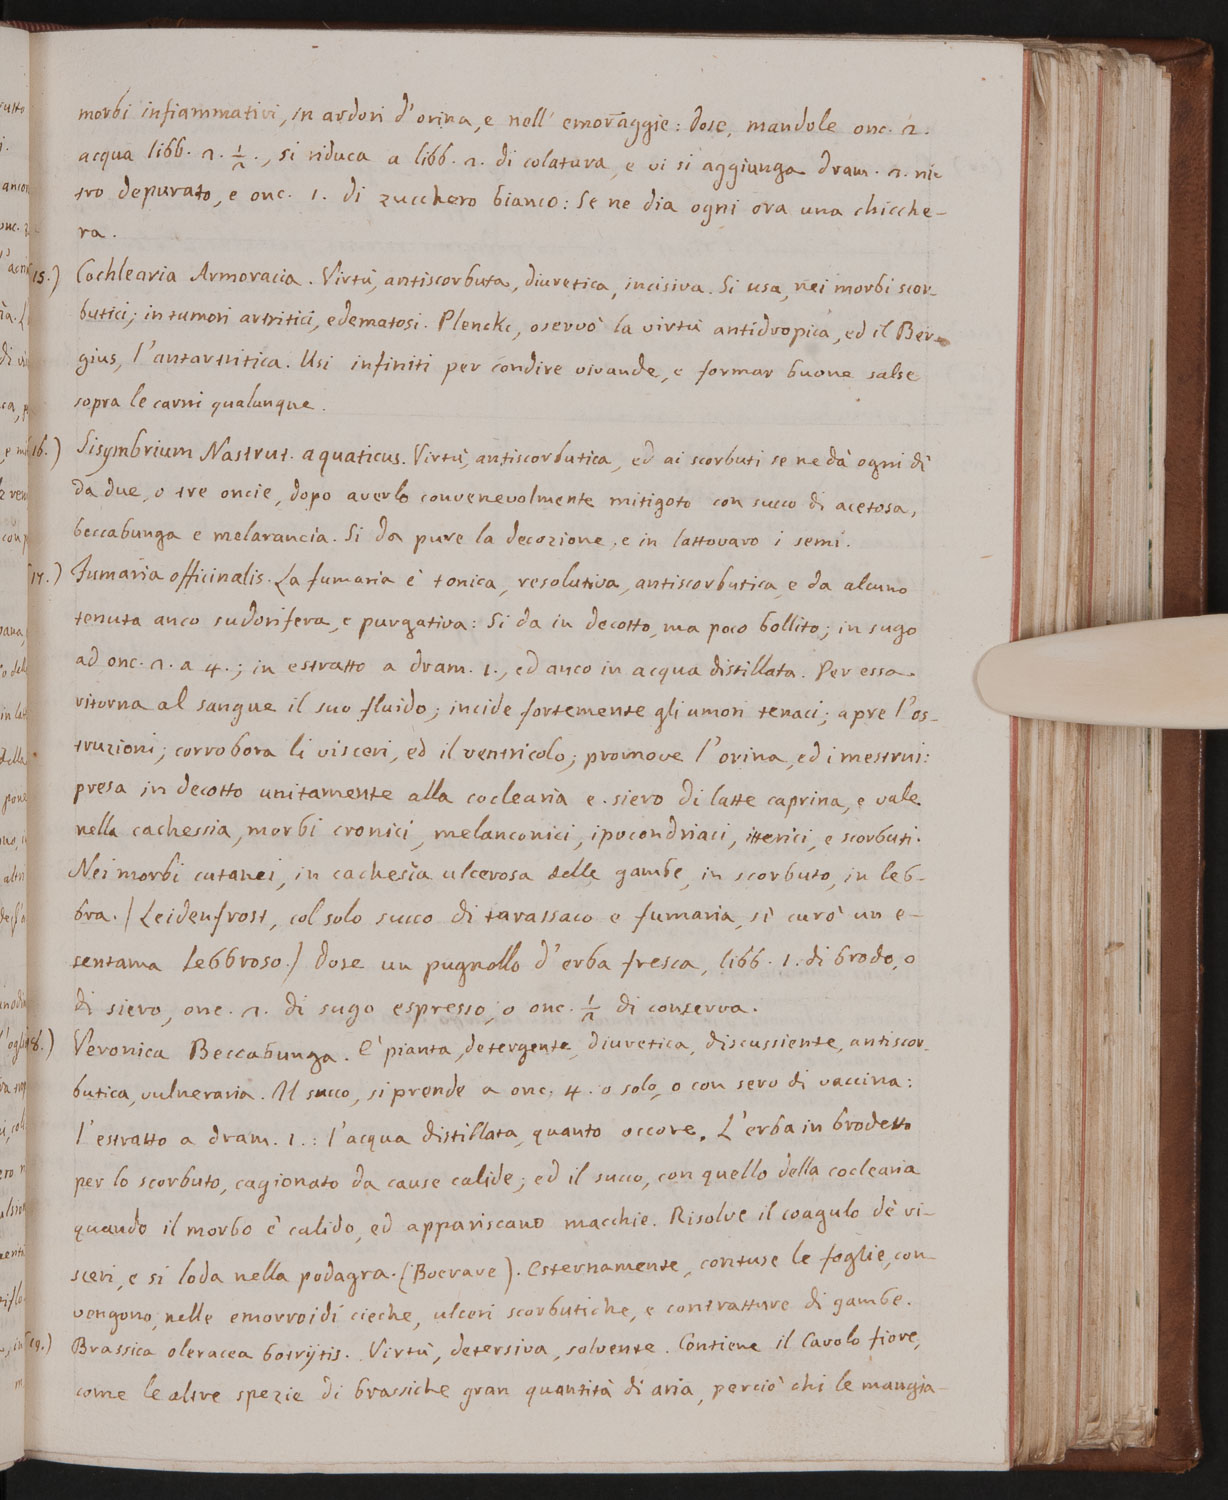 morbi infiammativi, in ardori d'orina, e nell' emoraggie: dose, mandole onc. 2.
acqua libb. 2. 1/2., si riduca a libb. 2. di colatura, e vi si aggiunga dram. 2. ni-
tro depurato, e onc. 1. di zucchero bianco: Se ne dia ogni ora una chicche-
ra.
15.) Cochlearia Armoracia. Virtù, antiscorbuta, diuretica, incisiva. Si usa, nei morbi scor-
butici; in tumori artritici, edematosi. Plenckc, oservò la virtù antidropica, ed il Ber-
gius, l'antartritica. Usi infiniti per condire vivande, e formar buone salse
sopra le carni qualunque.
16.) Sisymbrium Nastrut. aquaticus. Virtù, antiscorbutica, ed ai scorbuti se ne dà ogni dì
da due, o tre oncie, dopo averlo convenevolmente mitigato con succo di acetosa,
beccabunga e melarancia. Si da pure la decozione, e in lattovaro i semi.
17.) Fumaria officinalis. La fumaria è tonica, resolutiva, antiscorbutica, e da alcuno
tenuta anco sudorifera, e purgativa: Si da in decotto, ma poco bollito; in sugo
ad onc. 2. a 4.; in estratto a dram. 1., ed anco in acqua distillata. Per essa
ritorna al sangue il suo fluido; incide fortemente gli umori tenaci; apre l'os-
truzioni; corrobora li visceri, ed il ventricolo; promove l'orina, ed i mestrui:
presa in decotto unitamente alla coclearia e siero di latte caprina, e vale
nella cachessia, morbi cronici, melanconici, ipocondriaci, itterici, e scorbuti.
Nei morbi cutanei, in cachesia ulcerosa delle gambe, in scorbuto, in leb-
bra. / Leidenfrost, col solo succo di tarassaco e fumaria, si curò un e-
sentama lebbroso. / Dose un pugnollo d'erba fresca, libb. 1. di brodo, o
di siero, onc. 2. di sugo espresso, o onc. 1/2 di conserva.
18.) Veronica Beccabunga. E' pianta, detergente, diuretica, discussiente, antiscor-
butica, vulneraria. Il succo, si prende a onc. 4. o solo, o con sero di vaccina:
l'estratto a dram. 1.: l'acqua distillata, quanto occore. L'erba in brodetto
per lo scorbuto, cagionato da cause calide; ed il succo, con quello della coclearia
quando il morbo è calido, ed appariscano macchie. Risolve il coagulo dè vi-
sceri, e si loda nella podagra. (Boerave). Esternamente, contuse le foglie, con-
vengono, nelle emorroidi cieche, ulceri scorbutiche, e contratture di gambe.
19.) Brassica oleracea botrijtis. Virtù, detersiva, solvente. Contiene il Cavolo fiore,
come le altre spezie di brassiche gran quantità di aria, perciò chi le mangia-